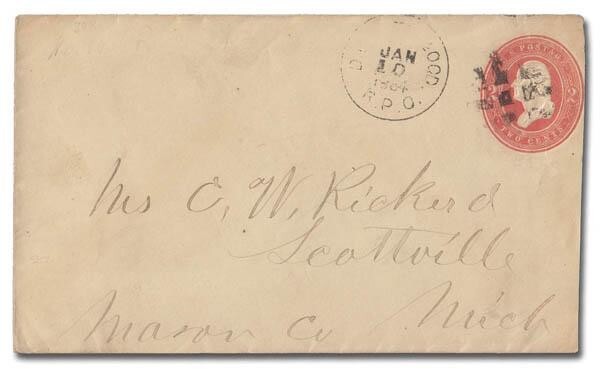 JAN
10
1884
R.P.O.
U.S. POSTAGE
TWO CENTS
Mrs E. W. Rickerd
Scottville
Mason Co Mich